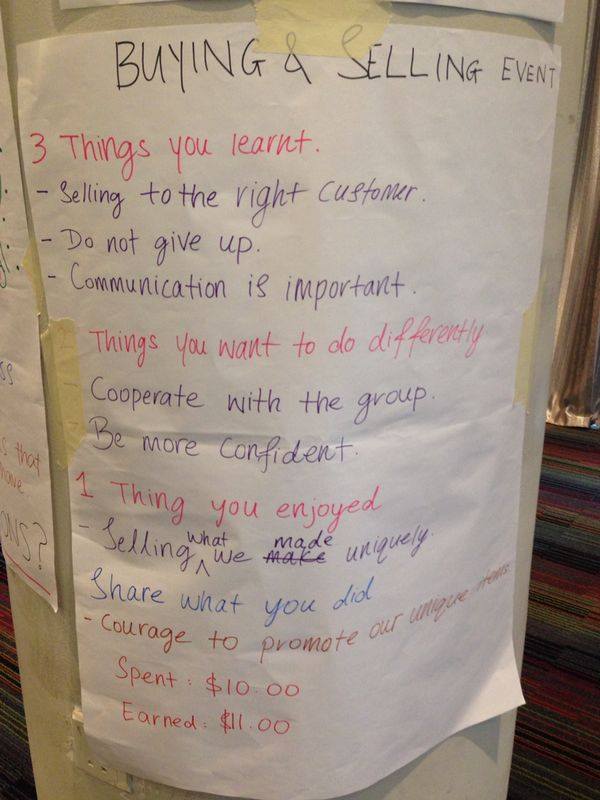 BUYING & SELLING EVENT
3 Things you learnt.
- Selling to the right customer.
- Do not give up.
- Communication is important.
Things you want to do differently
Cooperate with the group.
Be more confident.
1 Thing you enjoyed
- Selling what we made make uniquely.
Share what you did
- Courage to promote our unique items.
Spent : $10.00
Earned : $11.00
s that
ONS?